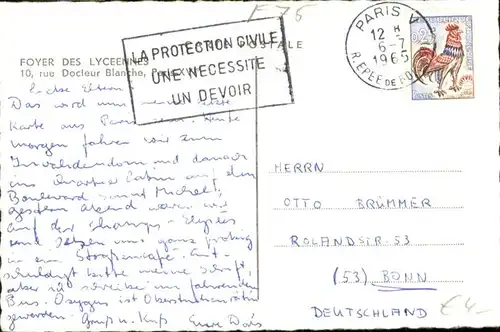 F 76
CARTE POSTALE
FOYER DES LYCEENNES
10, rue Docteur Blanche, Paris
LA PROTECTION CIVILE
UNE NECESSITE
UN DEVOIR
PARIS V
12 H
6-7
1965
R. EPEE DE BOIS
0,25
Liebe Eltern
Das wird nun meine letzte
Karte aus Paris sein. Heute
morgen fahren wir zum
Invalidendom und danach
ins Quartier Latin auf den
Boulevard Saint Michel,
gestern Abend waren wir
auf der Champs-Elysées
und setzen uns ganz
in ein Straßencafé. Ent-
schuldigt bitte meine Schrift,
aber ich schreibe im fahrenden
Bus. ist Oberstudienrätin
geworden. Gruß u. Kuß Eure
HERRN
OTTO BRÜMMER
ROLANDSTR. 53
(53) BONN
DEUTSCHLAND
€4-